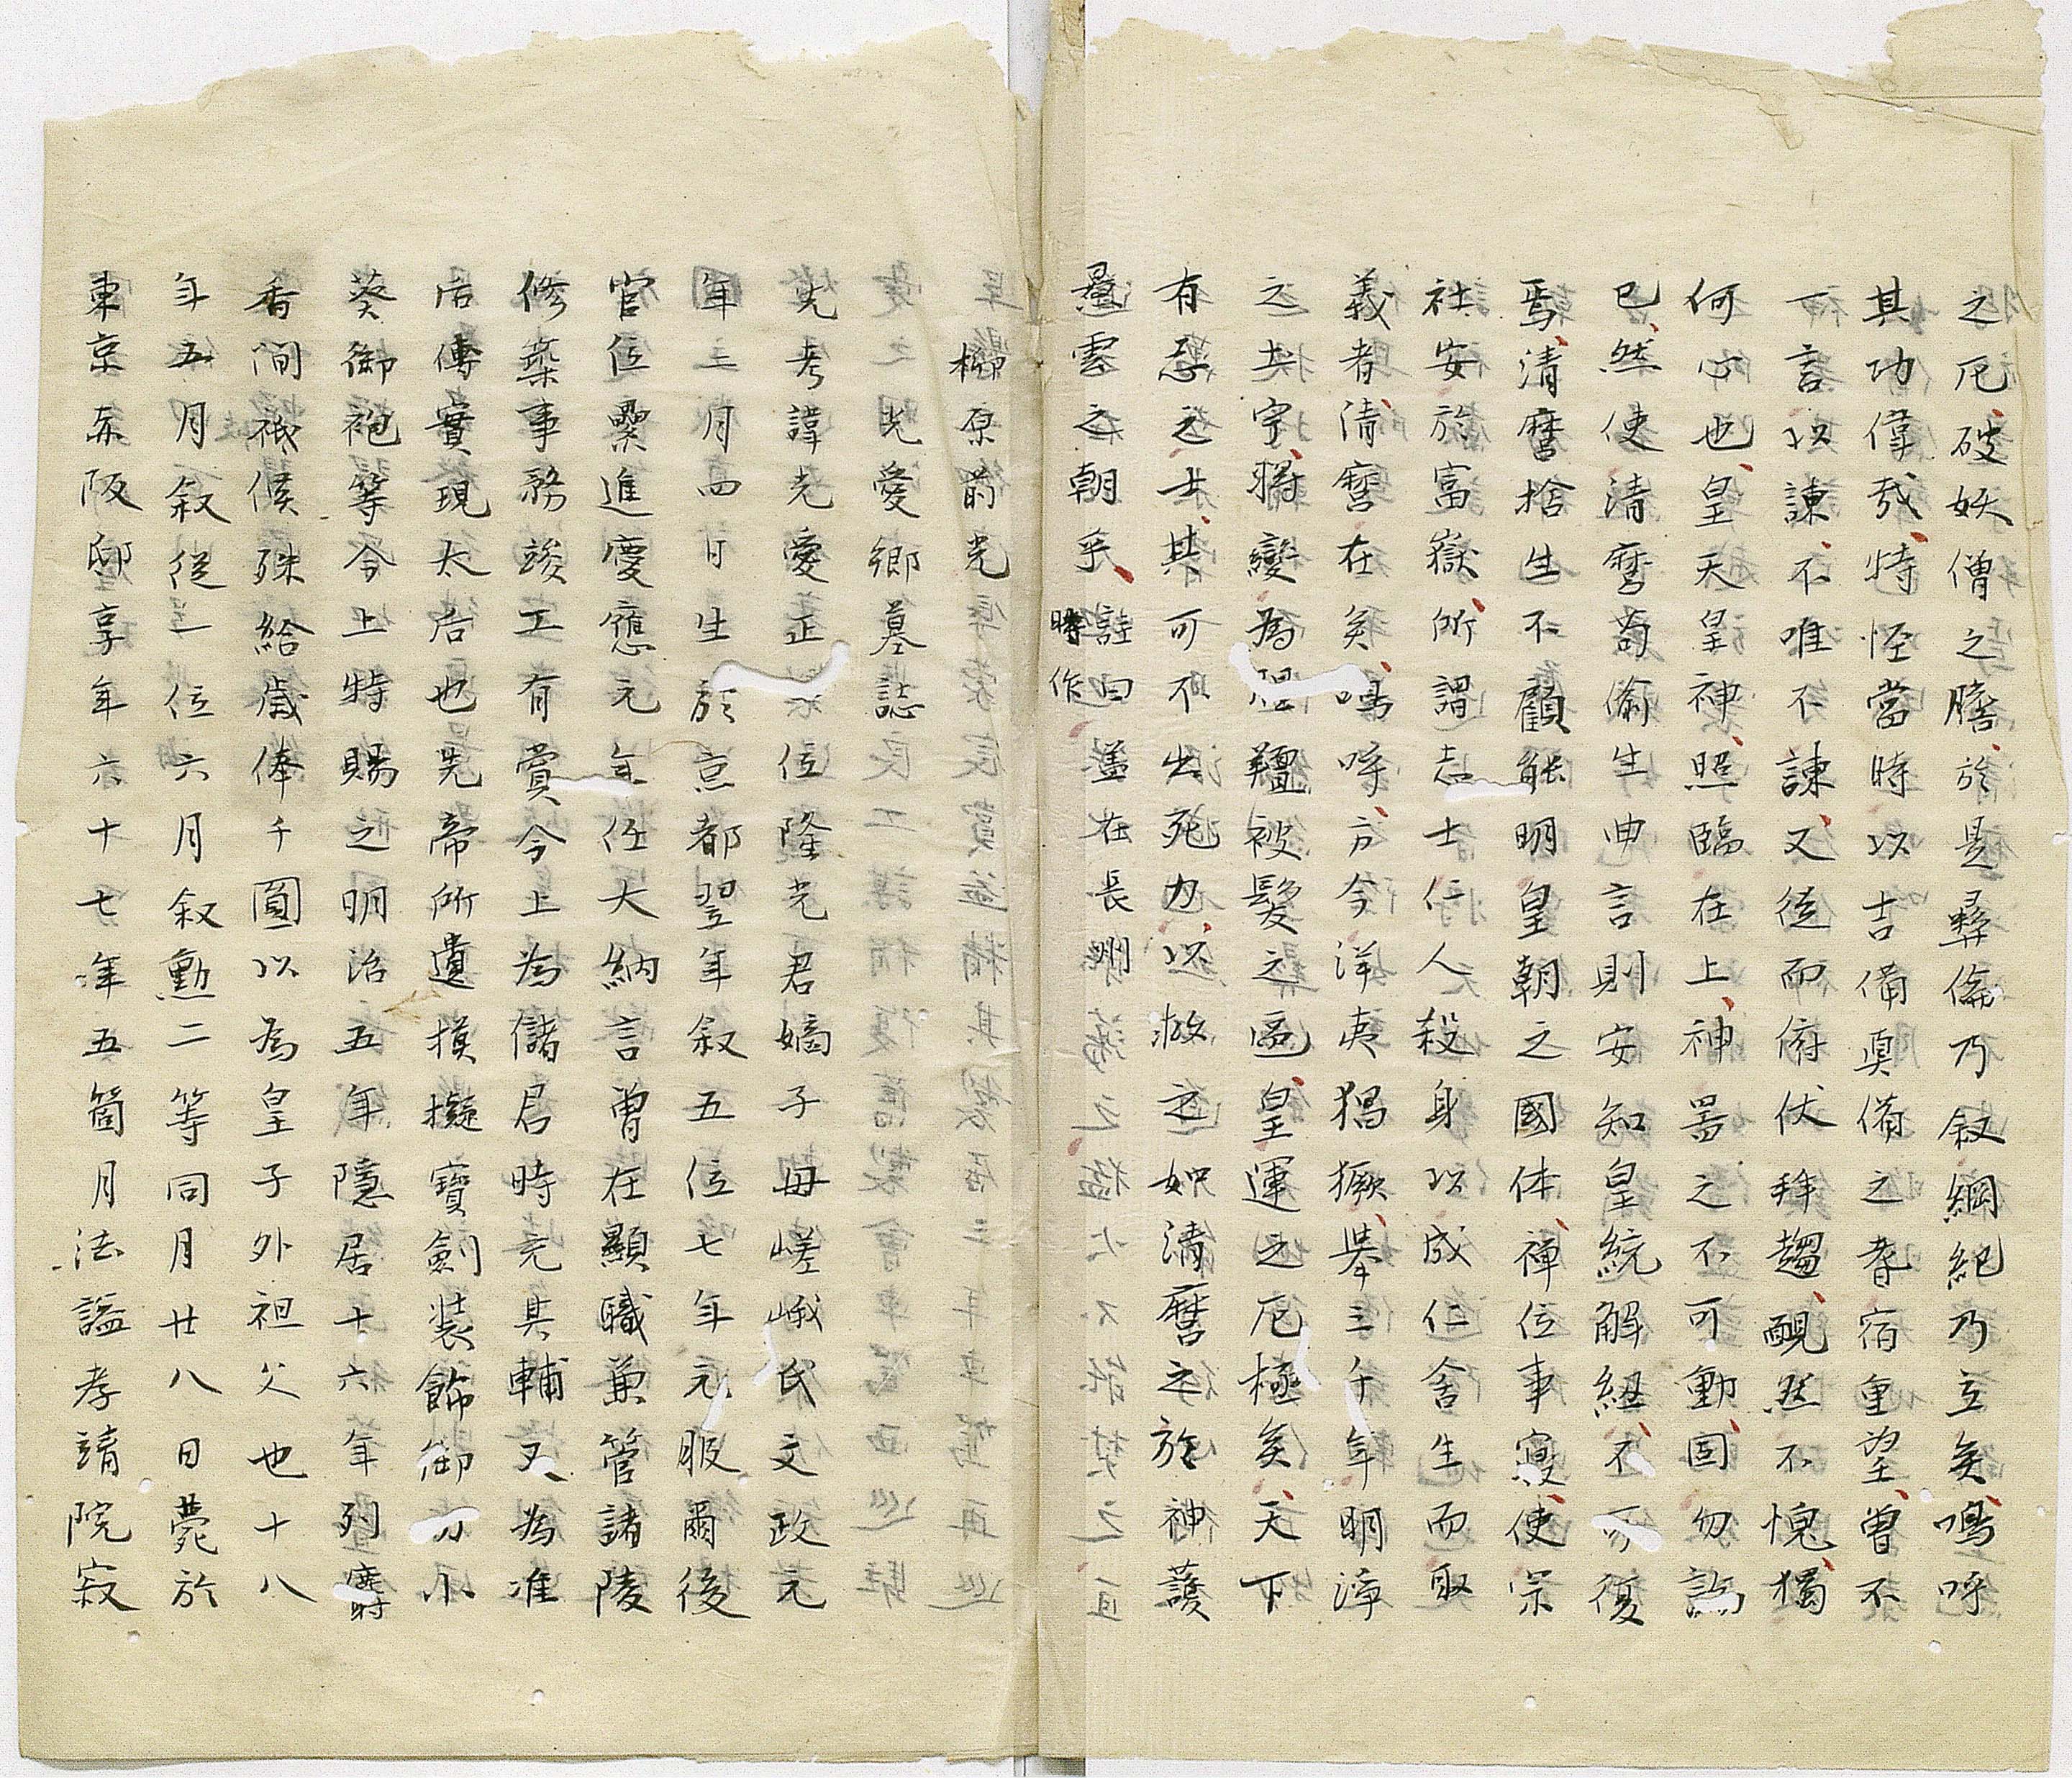 之厄、破妖僧之膽、於是彜倫乃叙綱紀乃立矣、嗚呼
其功偉哉、特恠當時以吉備眞備之耆宿重望、曽不
一言以諫、不唯不諫、又従而俯伏拝趨、靦然不愧、獨
何心也、皇天皇神、照臨在上、神器之不可動、固勿論
已、然使清麿苟偷生曲言則安知皇統解紐、不可復
焉、清麿捨生不顧、能明皇朝之國体、禅位事寝、使宗
社安於富嶽、所謂志士仁人殺身以成仁舎生而取
義者、清麿在矣、嗚呼、方今洋夷猖獗、挙三千年明浄
之土宇、将變為腥羶被髮之區、皇運之厄極矣、天下
有志之士、其可不出死力、以救之如清麿之於神護
景雲之朝乎、 註曰蓋在長州時作
柳原前光
光愛郷墓誌
先考諱光愛正二位隆光君嫡子母嵯峨氏文政元
年三月四日生於京都翌年叙五位七年元服爾後
官位累進慶應元年任大納言曽在顯職兼管諸陵
修築事務竣工有賞今上為儲君時充其輔又為准
后傅實現太后也先帝所遺摸擬寶劍装飾御刀小
葵御袍等今上特賜之明治五年隠居十六年列麝
香間祗候殊給歳俸千圓以為皇子外祖父也十八
年五月叙従一位六月叙勲二等同月廿八日薨於
東京赤阪邸享年六十七年五箇月法謚孝靖院寂